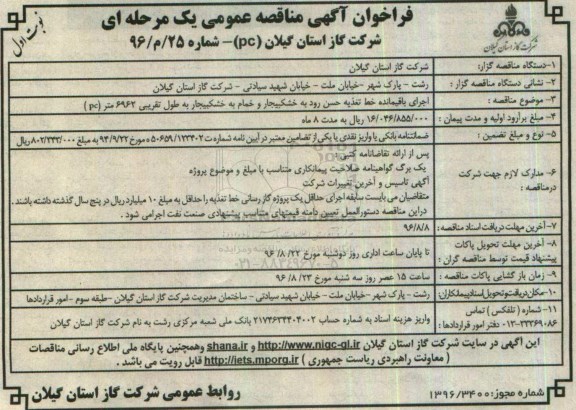 فراخوان آگهی مناقصه عمومی یک مرحله ای
نوبت اول
شرکت گاز استان گیلان (pc) – شماره ۲۵/م/۹۶
شرکت گاز استان گیلان
۱- دستگاه مناقصه گزار: شرکت گاز استان گیلان
۲- نشانی دستگاه مناقصه گزار: رشت – پارک شهر – خیابان ملت – خیابان شهید سیادتی – شرکت گاز استان گیلان
۳- موضوع مناقصه: اجرای باقیمانده خط تغذیه حسن رود به خشکبیجار و خمام به خشکبیجار به طول تقریبی ۶۹۶۲ متر (pc)
۴- مبلغ برآورد اولیه و مدت پیمان: ۱۶/۰۴۶/۸۵۵/۰۰۰ ریال به مدت ۸ ماه
۵- نوع و مبلغ تضمین: ضمانتنامه بانکی یا واریز نقدی یا یکی از تضامین معتبر در آیین نامه شماره ۱۲۳۴۰۲/ت۵۰۶۵۹ه مورخ ۹۴/۹/۲۲ به مبلغ ۸۰۲/۳۴۳/۰۰۰ ریال
۶- مدارک لازم جهت شرکت درمناقصه:
پس از ارائه تقاضانامه کتبی
یک برگ گواهینامه صلاحیت پیمانکاری متناسب با مبلغ و موضوع پروژه
آگهی تاسیس و آخرین تغییرات شرکت
متقاضیان می بایست سابقه اجرای حداقل یک پروژه گاز رسانی خط تغذیه را حداقل به مبلغ ۱۰ میلیارد ریال در پنج سال گذشته داشته باشند.
دراین مناقصه دستورالعمل تعیین دامنه قیمتهای متناسب پیشنهادی صنعت نفت اجرامی شود.
۷- آخرین مهلت دریافت اسناد مناقصه: ۹۶/۸/۸
۸- آخرین مهلت تحویل پاکات پیشنهاد قیمت توسط مناقصه گران: تا پایان ساعت اداری روز دوشنبه مورخ ۲۲/ ۸/ ۹۶
۹- زمان باز گشایی پاکات مناقصه: ساعت ۱۵ عصر روز سه شنبه مورخ ۲۳/ ۸/ ۹۶
۱۰- مکان دریافت و تحویل اسناد پیمانکاران: رشت – پارک شهر – خیابان ملت – خیابان شهید سیادتی – ساختمان مدیریت شرکت گاز استان گیلان – طبقه سوم – امور قراردادها
۱۱- شماره (تلفکس) تماس ۰۱۳-۳۳۳۶۹۰۸۶ دفتر امور قراردادها: واریز هزینه اسناد به شماره حساب ۲۱۷۴۶۳۴۴۰۴۰۰۲ بانک ملی شعبه مرکزی رشت به نام شرکت گاز استان گیلان
این آگهی در سایت شرکت گاز استان گیلان http://www.nigc-gl.ir و shana.ir وهمچنین پایگاه ملی اطلاع رسانی مناقصات
(معاونت راهبردی ریاست جمهوری) http://iets.mporg.ir قابل رویت می باشد.
شماره مجوز: ۱۳۹۶/۳۴۰۰
روابط عمومی شرکت گاز استان گیلان